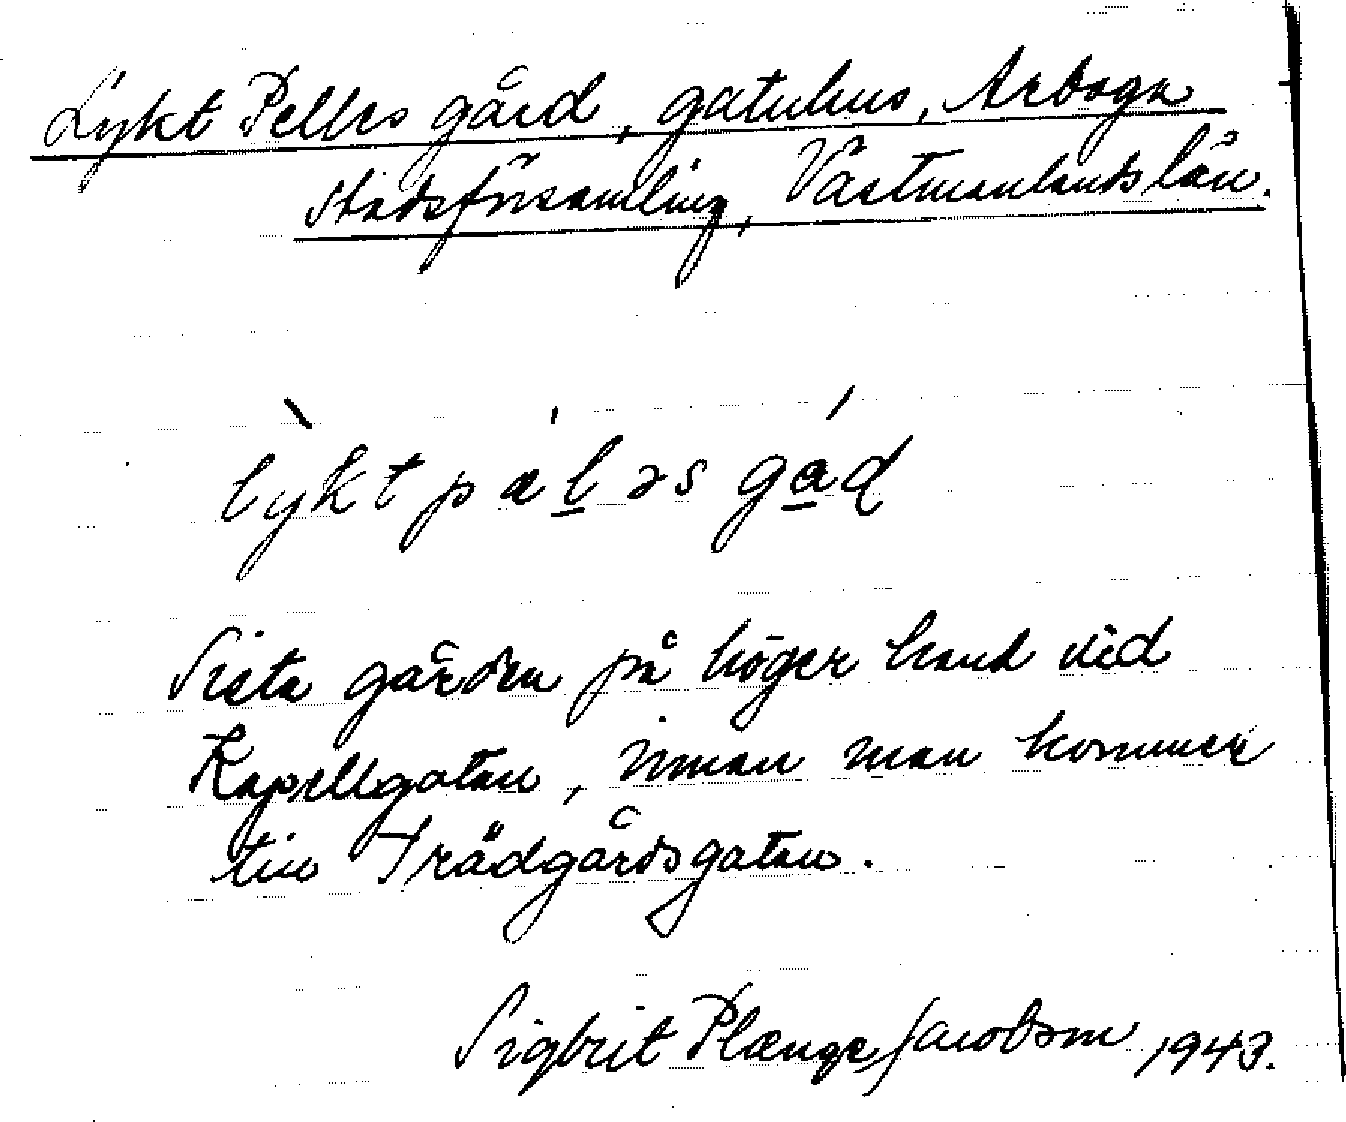 Lykt Pelles gård, gatuhus, Arboga
stadsförsamling, Västmanlands län.
lỳktpæ̍l̲əsgá̲ɖ
Sista gården på höger hand vid
Kapellgatan, innan man kommer
till Trädgårdsgatan.
Sigbrit Plænge Jacobson 1943.